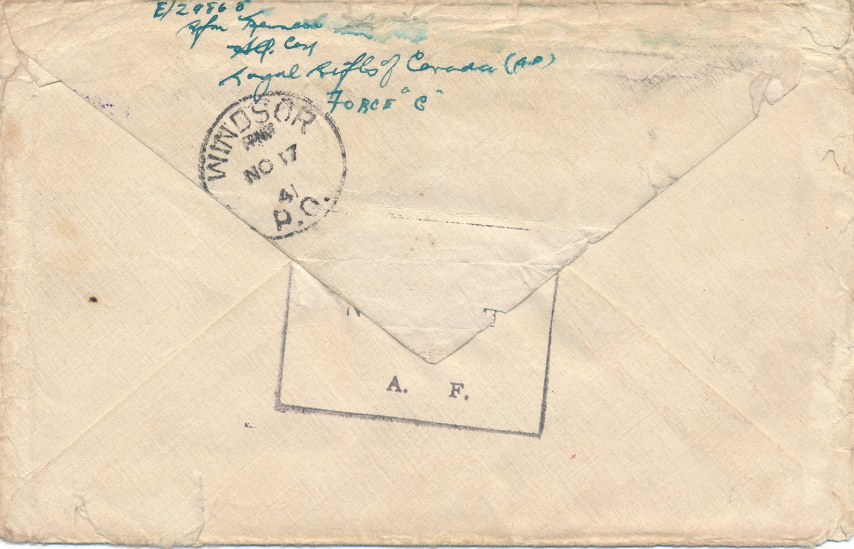 E/29860
Rfm Kenneth
H.Q. Coy
Royal Rifles of Canada (A.F.)
FORCE "C"
WINDSOR
PM
NO 17
41
P.Q.
N T
A. F.